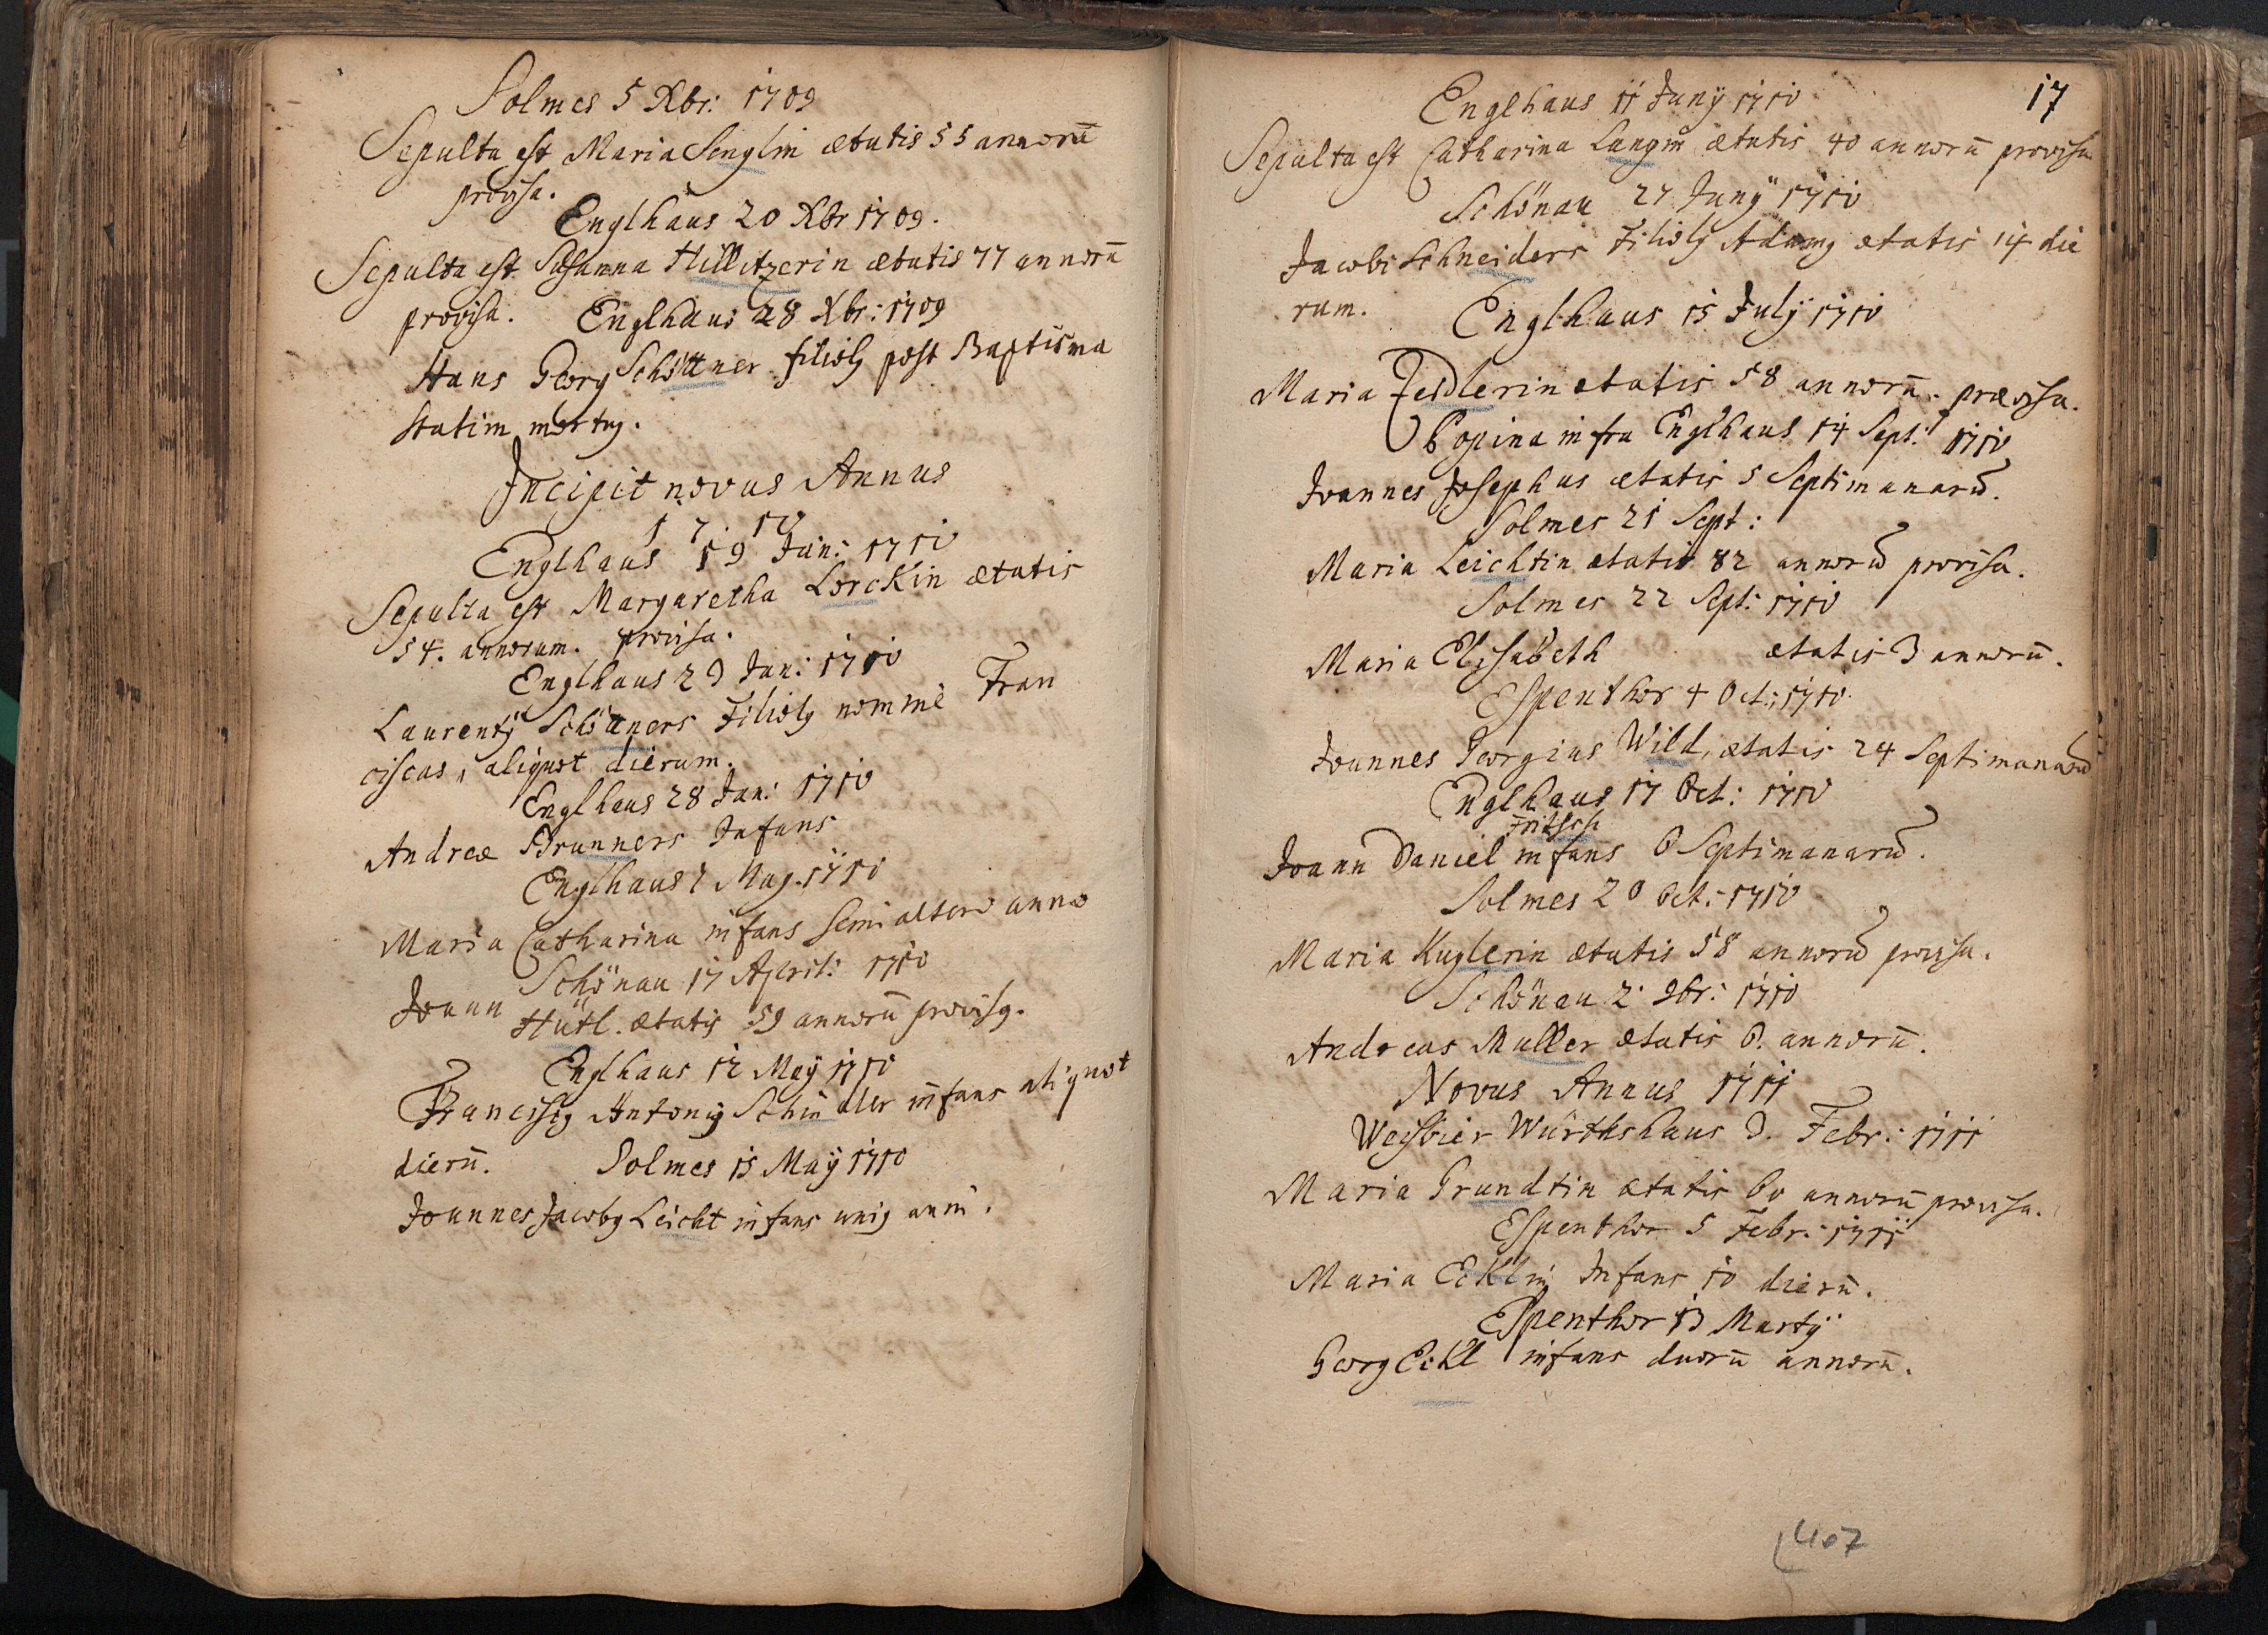 Solmes 5 Xbr: 1709
Sepulta est Maria Senglin ætatis 55 annorū
provisa.
Englhaus 20 Xbr 1709.
Sepulta est Susanna Hillitzerin ætatis 77 annorū
provisa. Englhaus 28 Xbr: 1709
Hans Georg Schöttner filiolq post Baptisma
statim mortuq.
Incipit novus Annus
1 7. 10
Englhaus 19 Jan: 1710
Sepulta est Margaretha Lorckin ætatis
54. annorum. provisa.
Englhaus 23 Jan: 1710
Laurentÿ Schöttners Filiolq nomine Fran
ciscus, aliquot dierum.
Englhaus 28 Jan: 1710
Andreæ Brunners Infans
Englhaus 7 May. 1710
Maria Catharina infans semi altero anno
Schönau 17 April: 1710
Joann Hütl. ætatis 59 annorū provisq.
Englhaus 12 Maÿ 1710
Franciscq Antoniq Schindler infans aliquot
dierū. Solmes 15 Maÿ 1710
Joannes Jacobq Leicht infans uniq anni.
17
Englhaus 11 Junÿ 1710
Sepulta est Catharina Langin ætatis 40 annorū provisa
Schönau 27 Junÿ 1710
Jacobi Schneiders Filiolq Adamq ætatis 14 die
rum.
Englhaus 15 Julÿ 1710
Maria Zeidlerin ætatis 58 annorū. provisa.
Popina infra Englhaus 14 Sept: 1710
Joannes Josephus ætatis 5 Septimanarū.
Solmes 21 Sept:
Maria Leichtin ætatis 82 annorū provisa.
Solmes 22 Sept: 1710
Maria Elisabeth ætatis 3 annorū.
Espenthor 4 Oct: 1710
Joannes Georgius Wild, ætatis 24 Septimanarū
Englhaus 17 Oct: 1710
Fritsch
Joann Daniel infans 6 Septimanarū.
Solmes 20 Oct: 1710
Maria Kuglerin ætatis 58 annorū provisa.
Schönau 2. 9br: 1710
Andreas Muller ætatis 6. annorū.
Novus Annus 1711
Weisbier Würthshaus 3. Febr: 1711
Maria Grundtin ætatis 60 annorū provisa.
Espenthor 5 Febr: 1711
Maria Ecklin Infans 10 dierū.
Espenthor 13 Martÿ
Georg Eckl infans duorū annorū.
407